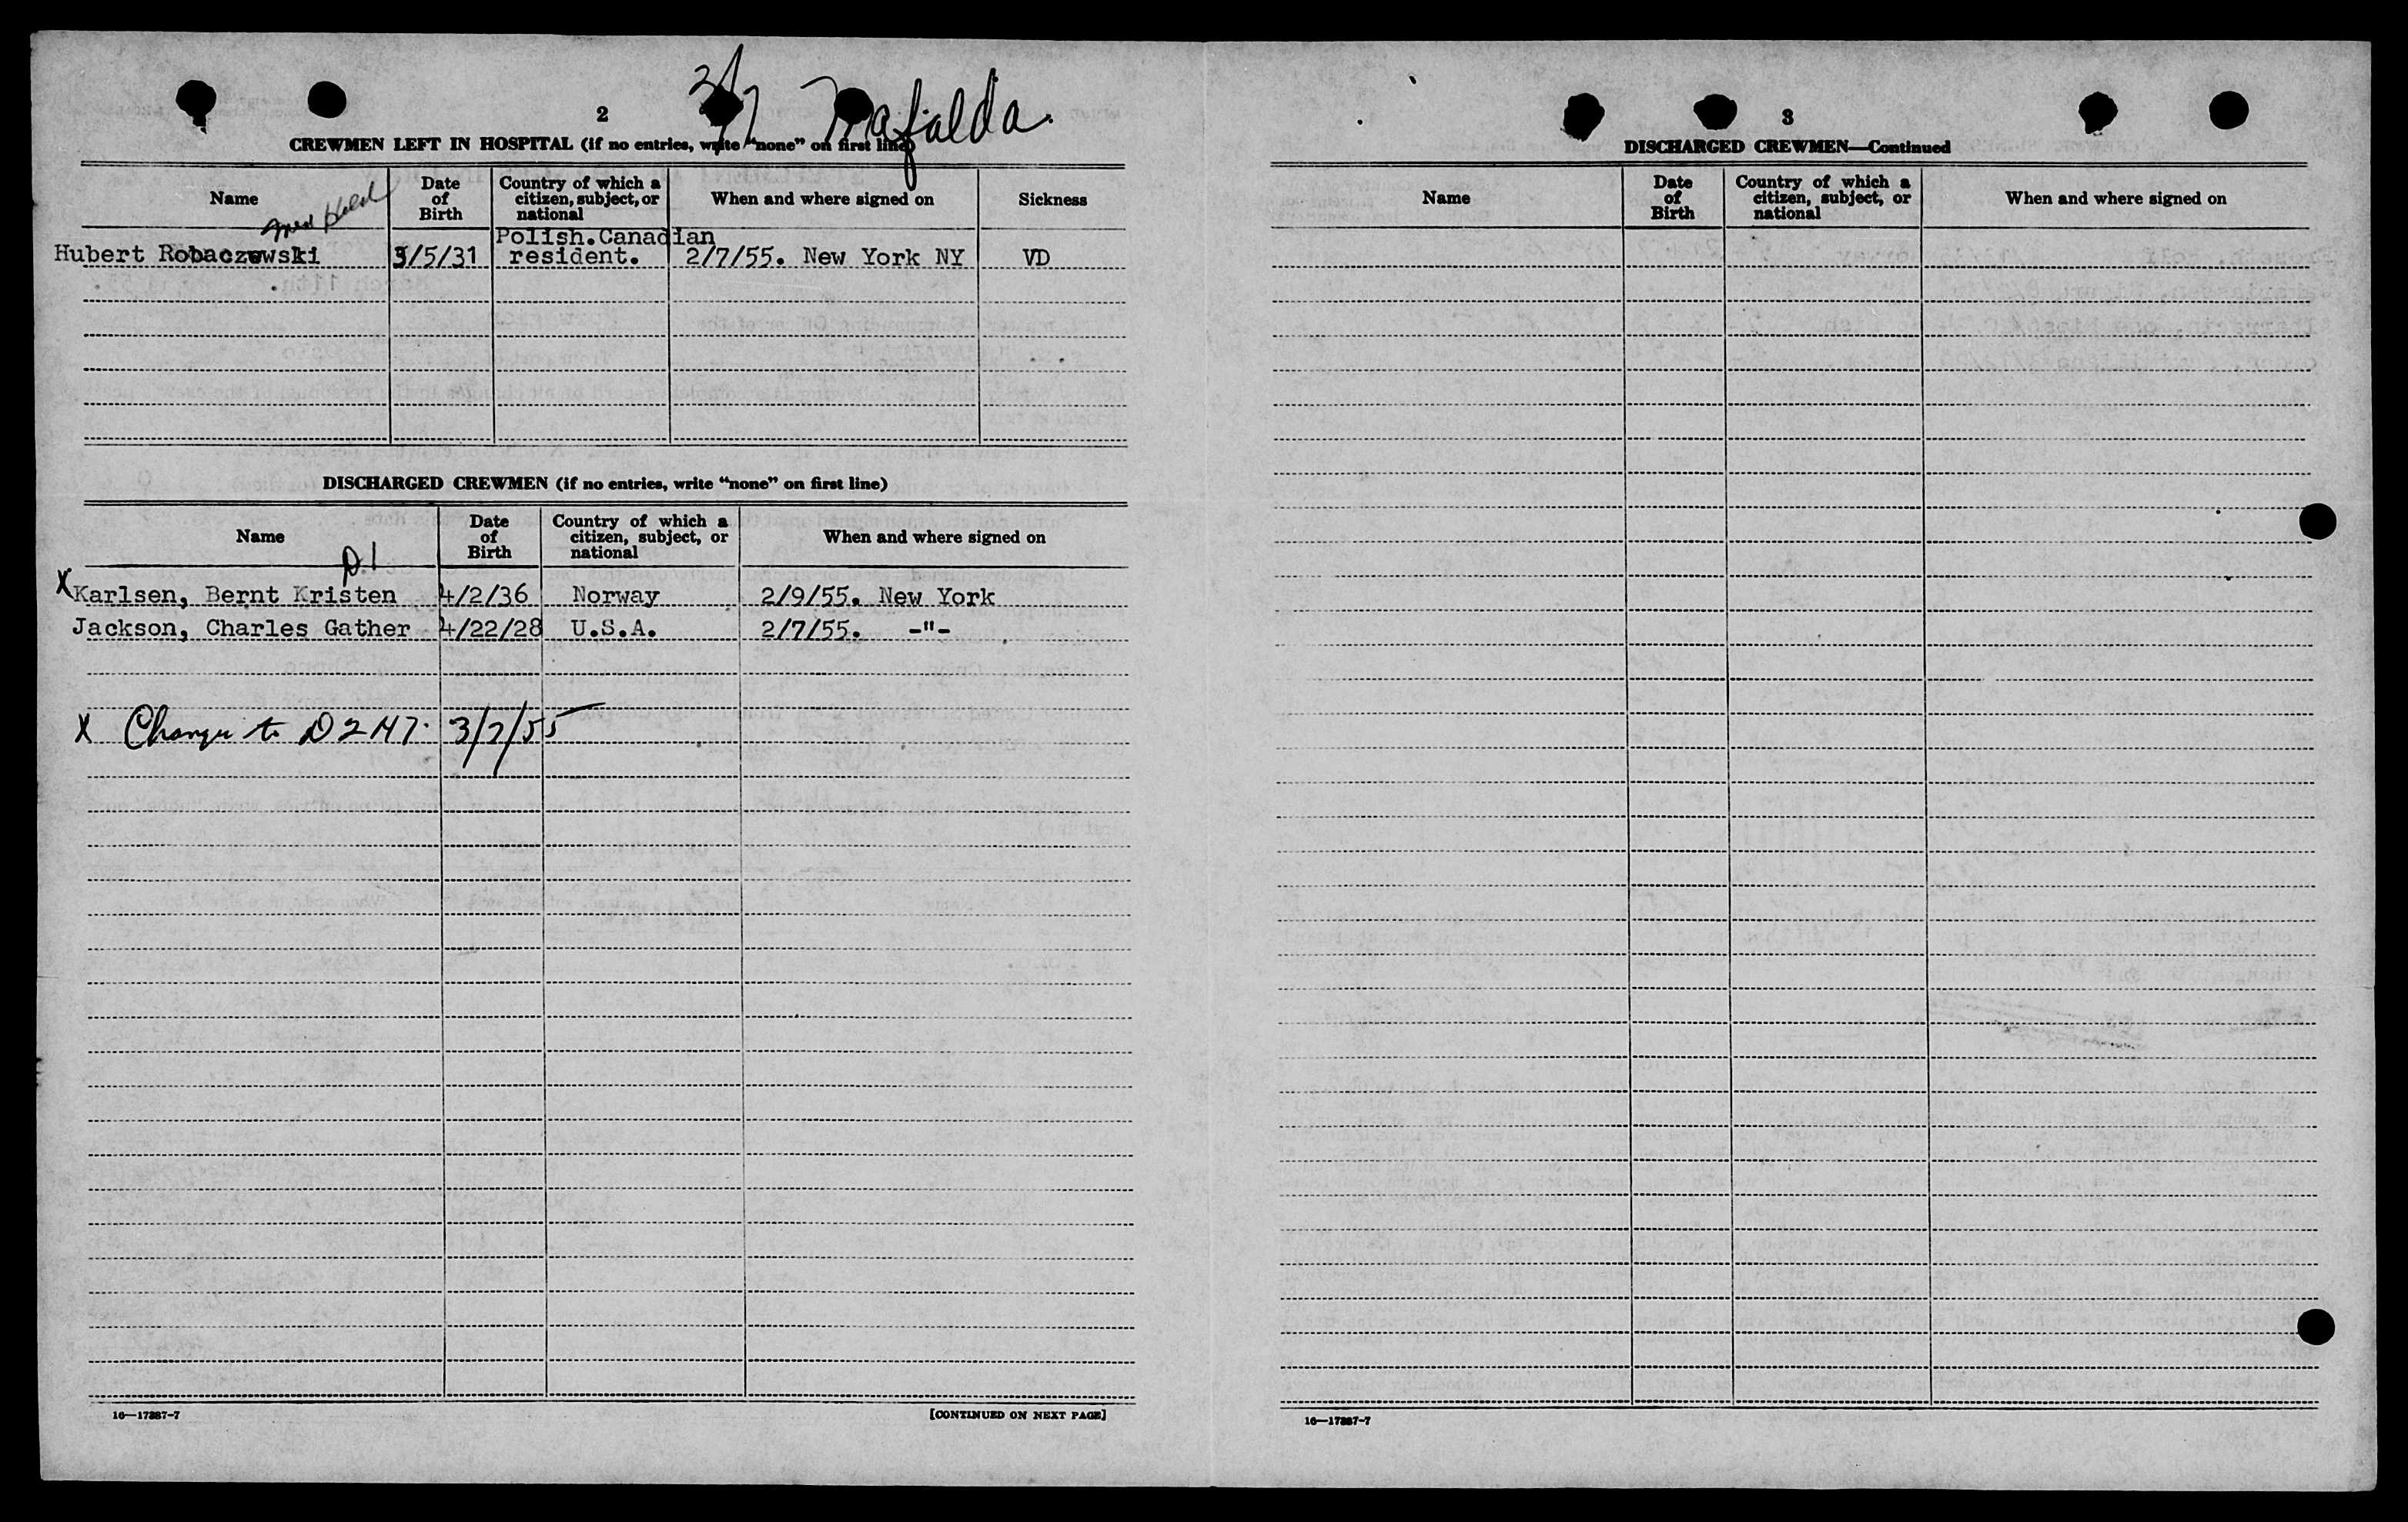 2
3/7 Mafalda.
CREWMEN LEFT IN HOSPITAL (if no entries, write "none" on first line)
Name
Date of Birth
Country of which a citizen, subject, or national
When and where signed on
Sickness
Med Held
Hubert Robaczewski 3/5/31 Polish. Canadian resident. 2/7/55. New York NY VD
DISCHARGED CREWMEN (if no entries, write "none" on first line)
Name
Date of Birth
Country of which a citizen, subject, or national
When and where signed on
D1
X Karlsen, Bernt Kristen 4/2/36 Norway 2/9/55. New York
Jackson, Charles Gather 4/22/28 U.S.A. 2/7/55. -"-
X Change to D2 3/7/55
16—17887-7
[CONTINUED ON NEXT PAGE]
3
DISCHARGED CREWMEN—Continued
Name
Date of Birth
Country of which a citizen, subject, or national
When and where signed on
16—17887-7